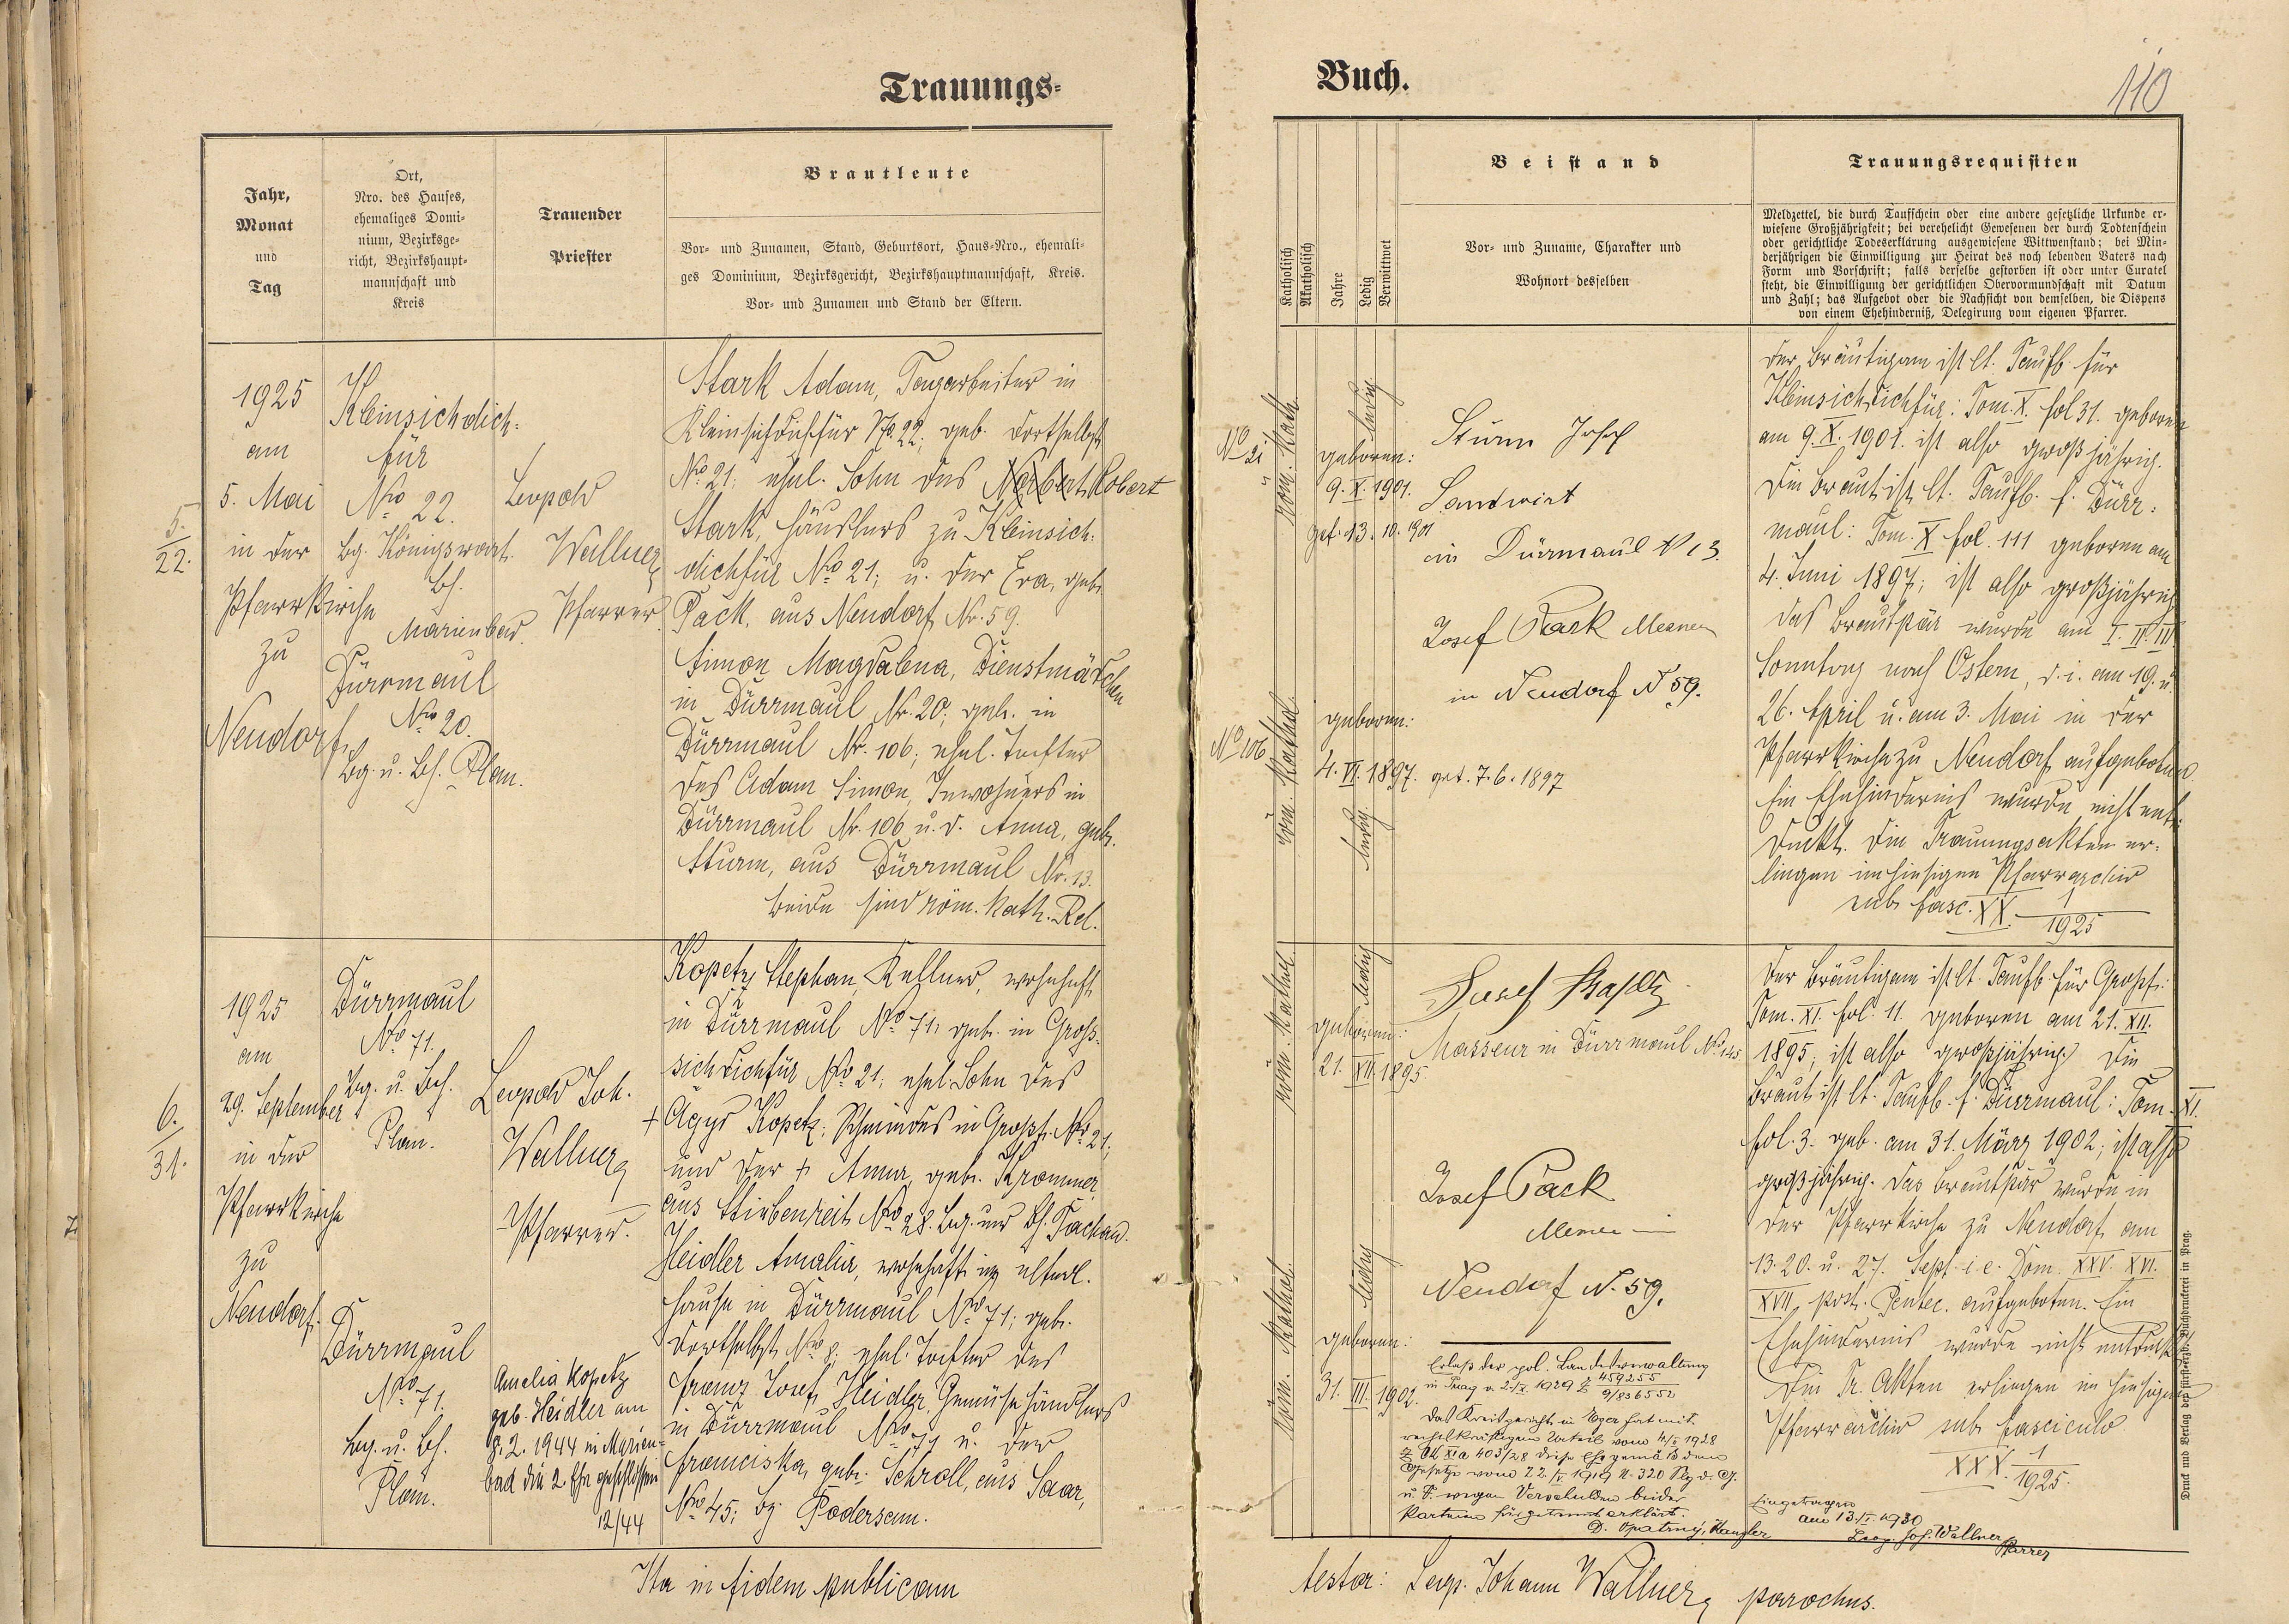 Trauungs-
Jahr,
Monat
und
Tag
Ort,
Nro. des Hauses,
ehemaliges Domi-
nium, Bezirksge-
richt, Bezirkshaupt-
mannschaft und
Kreis
Trauender
Priester
Brautleute
Vor- und Zunamen, Stand, Geburtsort, Haus-Nro., ehemali-
ges Dominium, Bezirksgericht, Bezirkshauptmannschaft, Kreis.
Vor- und Zunamen und Stand der Eltern.
5.
22.
1925
am
5. Mai
in der
Pfarrkirche
zu
Neudorf
Kleinsichdich-
für
Nro 22.
bg. Königswart.
bh.
Marienbad.
Dürrmaul
Nro 20.
bg. u. bh. Plan.
Leopold
Wallner
Pfarrer
Stark Adam, Tagarbeiter in
Kleinsichdichfür No 22; geb. dortselbst
No 21; ehel. Sohn des Norbert Robert
Stark, Häuslers zu Kleinsich-
dichfür Nro 21; u. der Eva, geb.
Pack, aus Neudorf Nr. 59.
Simon Magdalena, Dienstmädchen
in Dürrmaul Nr. 20; geb. in
Dürrmaul Nr. 106; ehel. Tochter
des Adam Simon, Inwohners in
Dürrmaul Nr. 106 u. d. Anna, geb.
Sturm, aus Dürrmaul Nr. 13.
beide sind röm. kath. Rel.
6.
31.
1925
am
29. September
in der
Pfarrkirche
zu
Neudorf.
Dürrmaul
Nro 71.
bg. u. bh.
Plan.
Dürrmaul
Nro 71.
bg. u. bh.
Plan.
Leopold Joh.
Wallner
Pfarrer.
Amelia Kopetz
geb. Heidler am
8. 2. 1944 in Marien-
bad die 2. Ehe geschlossen
12/44
Kopetz Stephan, Kellner, wohnhaft
in Dürrmaul No 71, geb. in Groß-
sichdichfür No 21; ehel. Sohn des
+ Ägyd Kopetz; Schmiedes in Großs. No 21;
und der + Anna, geb. Krommer
aus Stiebenreit No 28. bg. und bh. Tachau.
Heidler Amalia, wohnhaft im elterl.
Hause in Dürrmaul No 71; geb.
dortselbst Nro 8; ehel. Tochter des
Franz Josef Heidler, Gemüsehändlers
in Dürrmaul Nro 71 u. der
Franciska, geb. Schroll, aus Saar,
No 45; bg. Podersam.
Ita in fidem publicam
Buch.
110
Katholisch
Akatholisch
Jahre
Ledig
Verwittwet
Beistand
Vor- und Zuname, Charakter und
Wohnort desselben
Trauungsrequisiten
Meldzettel, die durch Taufschein oder eine andere gesetzliche Urkunde er-
wiesene Großjährigkeit; bei verehelicht Gewesenen der durch Todtenschein
oder gerichtliche Todeserklärung ausgewiesene Wittwenstand; bei Min-
derjährigen die Einwilligung zur Heirat des noch lebenden Vaters nach
Form und Vorschrift; falls derselbe gestorben ist oder unter Curatel
steht, die Einwilligung der gerichtlichen Obervormundschaft mit Datum
und Zahl; das Aufgebot oder die Nachsicht von demselben, die Dispens
von einem Ehehinderniß, Delegirung vom eigenen Pfarrer.
No 21
röm. kath.
ledig
geboren:
9. X. 1901.
get. 13. 10. 1901
Sturm Josef
Landwirt
in Dürrmaul N 13.
Josef Pack Mesner
in Neudorf N 59.
No 106
röm. kathol.
ledig.
geboren:
4. VI. 1897. get. 7. 6. 1897
der Bräutigam ist lt. Taufb. für
Kleinsichdichfür: Tom. X. fol 31. geboren
am 9. X. 1901. ist also großjährig.
Die Braut ist lt. Taufb. f. Dürr-
maul: Tom. X fol. 111 geboren am
4. Juni 1897; ist also großjährig
das Brautpaar wurde am I. II. III.
Sonntag nach Ostern, d. i. am 19. u.
26. April u. am 3. Mai in der
Pfarrkirche zu Neudorf aufgeboten.
Ein Ehehindernis wurde nicht ent-
deckt. Die Trauungsakten er-
liegen im hiesigen Pfarrarchiv
sub. fasc. XX. 1
1925
röm. kathol
ledig
geboren:
21. XII. 1895.
Josef
Masseur in Dürrmaul No 145
Josef Pack
Mesner in
Neudorf N. 59.
röm. kathol.
ledig
geboren:
31. III. 1902.
Erlaß der pol. Landesverwaltung
in Prag v. 21/X. 1929 Z 459255
9/836552
Das Kreisgericht in Eger hat mit
rechtskräftigem Urteil vom 4/X 1928
Z Ck XIa 403/28 diese Ehe gemäß dem
Gesetze vom 22/V. 1919 N. 320 Slg. d. G.
u V. wegen Verschulden beider
Parteien für getrennt erklärt.
D. Opatrný, Kanzler
Der Bräutigam ist lt. Taufb. für Großs.:
Tom. XI. fol. 11. geboren am 21. XII.
1895; ist also großjährig. Die
Braut ist lt. Taufb. f. Dürrmaul: Tom. XI.
fol. 3. geb. am 31. März 1902; ist also
großjährig. Das Brautpaar wurde in
der Pfarrkirche zu Neudorf am
13. 20. u. 27. Sept. i. e. Dom. XXV. XVI.
XVII. post. Pentec. aufgeboten. Ein
Ehehindernis wurde nicht entdeckt.
Die Tr. Akten erliegen im hiesigen
Pfarrarchiv sub fasciculo
XXX. 1
1925.
Eingetragen
am 13./I. 1930
Leop. Joh. Wallner
Pfarrer
Druck und Verlag der fürsterzb. Buchdruckerei in Prag.
testor: Leop. Johann Wallner, parochus.